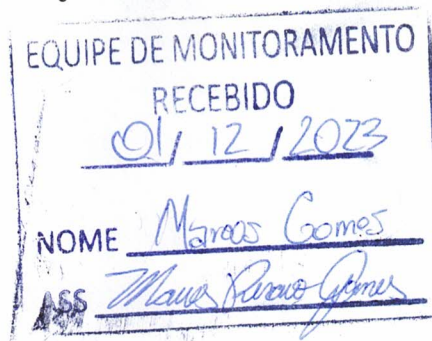 EQUIPE DE MONITORAMENTO
RECEBIDO
01/ 12 / 2023
NOME Marcos Gomes
ASS Gomes